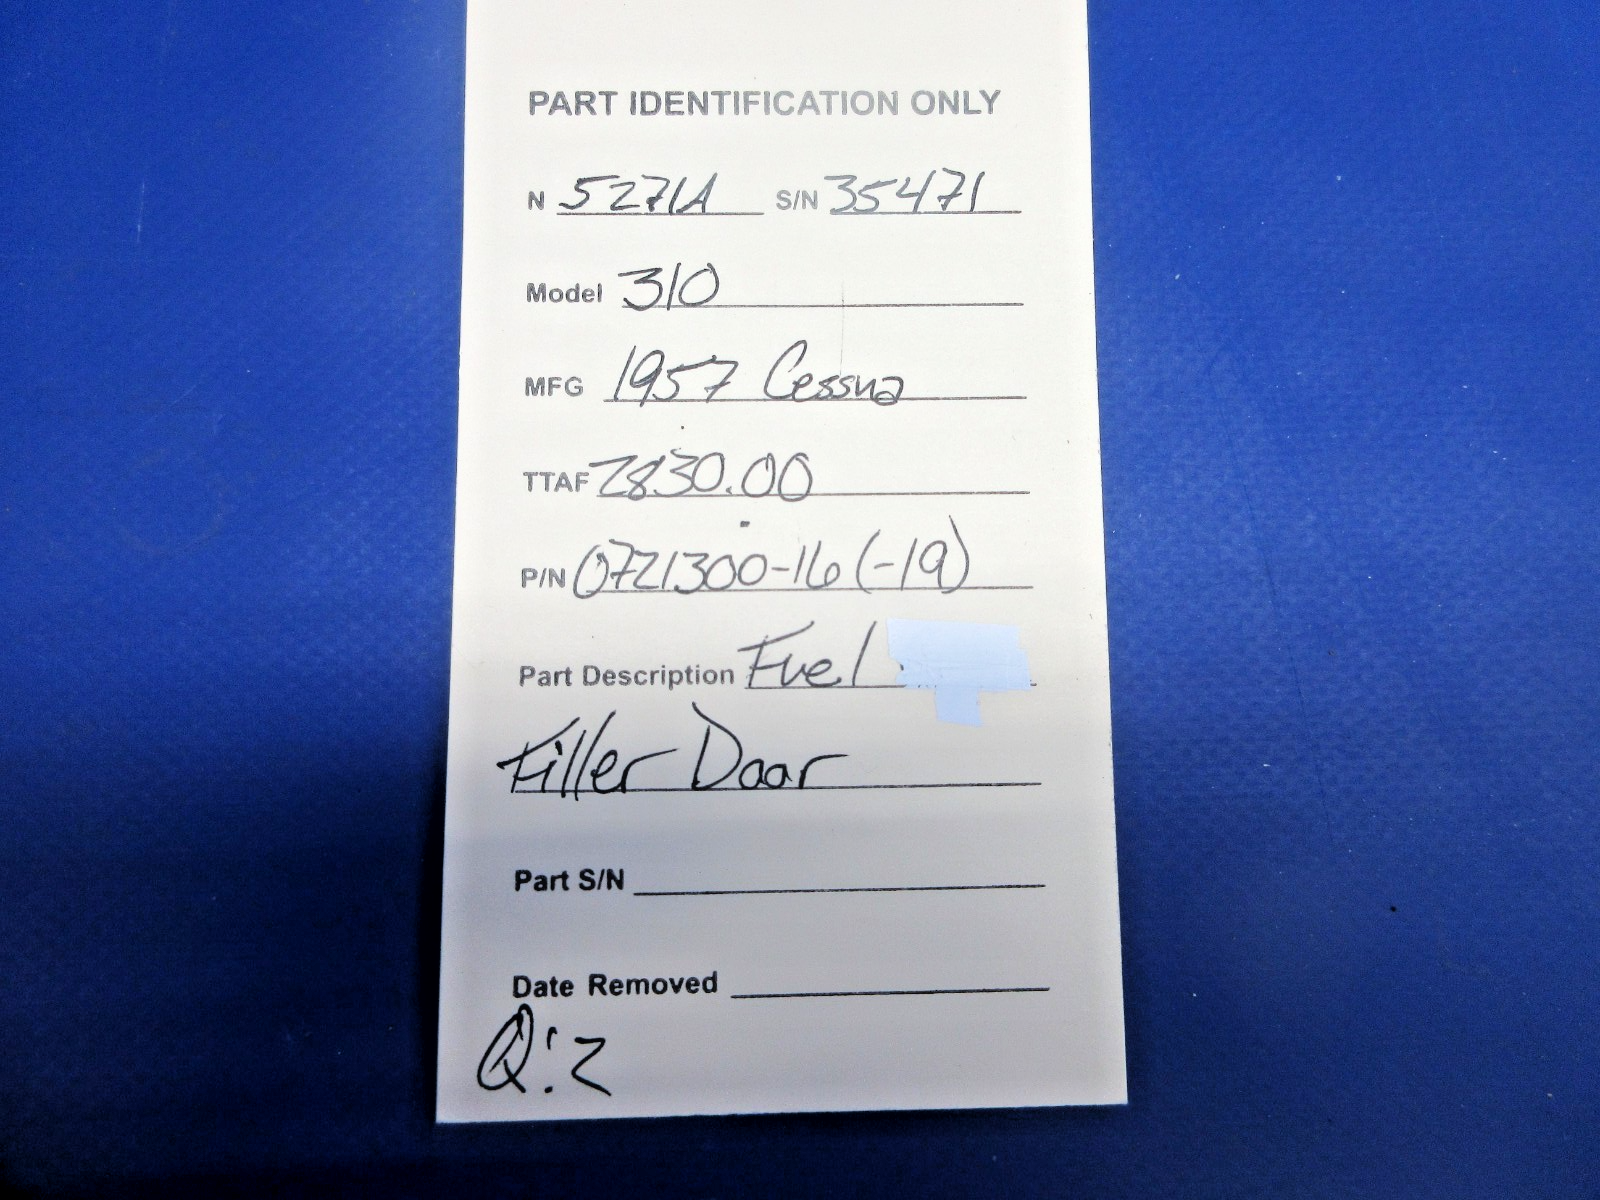 PART IDENTIFICATION ONLY
N 5271A S/N 35471
Model 310
MFG 1957 Cessna
TTAF 2830.00
P/N 0721300-16 (-19)
Part Description Fuel
Filler Door
Part S/N
Date Removed
Q:2